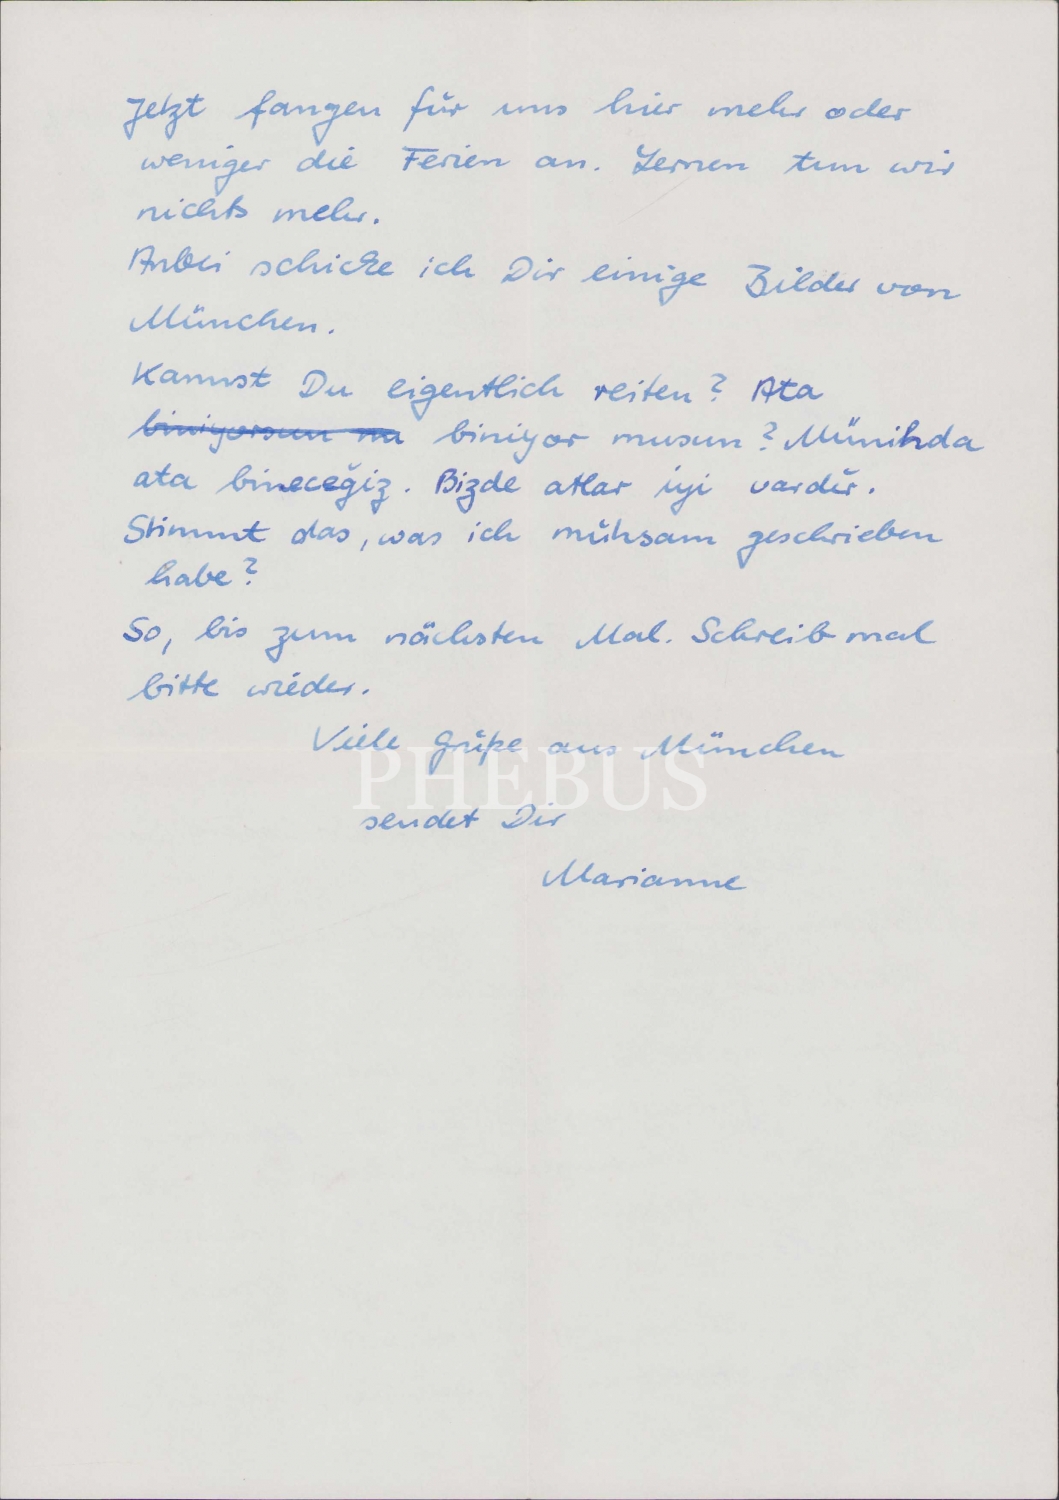 Jetzt fangen für uns hier mehr oder
weniger die Ferien an. Lernen tun wir
nichts mehr.
Anbei schicke ich Dir einige Bilder von
München.
Kannst Du eigentlich reiten? Ata
biniyorsun mu biniyor musun? Münihda
ata bineceğiz. Bizde atlar iyi vardır.
Stimmt das, was ich mühsam geschrieben
habe?
So, bis zum nächsten Mal. Schreib mal
bitte wieder.
Viele Grüße aus München
PHEBUS
sendet Dir
Marianne